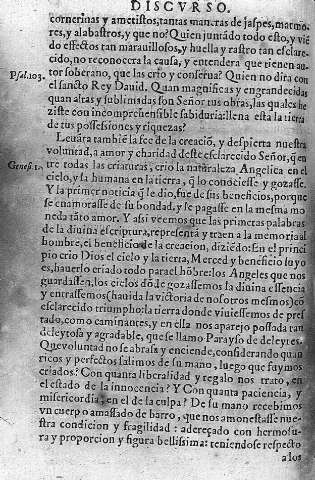 DISCVRSO.
cornerinas y ametistos, tantas maneras de jaspes, marmo-
res, y alabastros, y que no? Quien juntādo todo esto, y viē
do effectos tan marauillosos, y huella y rastro tan esclare-
cido, no reconocera la causa, y entendera que tienen au-
tor soberano, que las crio y conserua? Quien no dira con
Psal. 103.
el sancto Rey Dauid. Quan magnificas y engrandecidas
quan altas y sublimadas son Señor tus obras, las quales he
ziste con incomprehensible sabiduria: llena esta la tierra
de tus possessiones y riquezas?
Leuāta tambiē la fee de la creaciō, y despierta nuestra
voluntad, a amor y charidad deste esclarecido Señor, q̄ en
Genes. 1.
tre todas las criaturas, crio la naturaleza Angelica en el
cielo, y la humana en la tierra, q̄ lo conociesse y gozasse.
Y la primer noticia q̄ le dio, fue de sus beneficios, porque
se enamorasse de su bondad, y le pagasse en la mesma mo
neda tāto amor. Y assi veemos que las primeras palabras
de la diuina escriptura, representa y traen a la memoria al
hombre, el beneficio de la creacion, diziēdo: En el princi
pio crio Dios el cielo y la tierra, Merced y beneficio suyo
es, hauerlo criado todo para el hōbre: los Angeles que nos
guardassen, los cielos dōde gozassemos la diuina essencia
y entrassemos (hauida la victoria de nosotros mesmos) cō
esclarecido triumpho: la tierra donde viuiessemos de pres
tado, como caminantes, y en ella nos aparejo possada tan
deleytosa y agradable, que se llamo Parayso de deleytes.
Que voluntad no se abrasa y enciende, considerando quan
ricos y perfectos salimos de su mano, luego que fuymos
criados? Con quanta liberalidad y regalo nos trato, en
el estado de la innocencia? Y Con quanta paciencia, y
misericordia, en el de la culpa? De su mano recebimos
vn cuerpo amassado de barro, que nos amonestasse nue-
stra condicion y fragilidad: adereçado con hermosu-
ra y proporcion y figura bellissima: teniendose respecto
a los